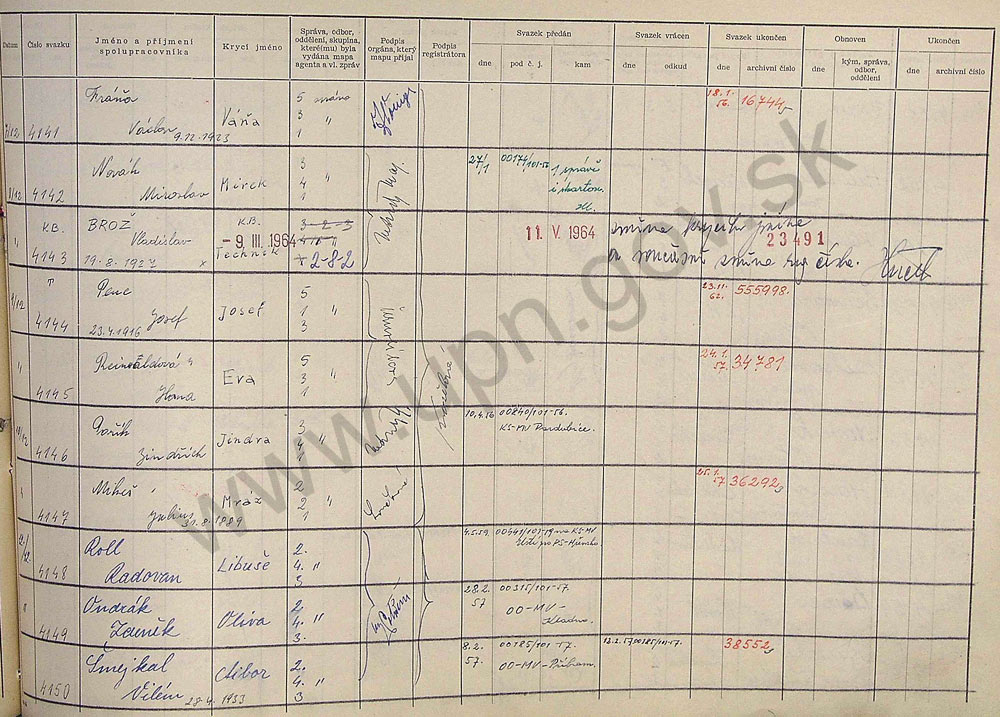 Datum
Číslo svazku
Jméno a příjmení spolupracovníka
Krycí jméno
Správa, odbor, oddělení, skupina, které(mu) byla vydána mapa agenta a vl. zpráv
Podpis orgána, který mapu přijal
Podpis registrátora
Svazek předán
dne
pod č. j.
kam
Svazek vrácen
dne
odkud
Svazek ukončen
dne
archivní číslo
Obnoven
dne
kým, správa, odbor, oddělení
Ukončen
dne
archivní číslo
4141
Fráňa
Václav 9.12.1923
Váňa
5 správa
3 "
1
18.1.
56.
16744
4142
Novák
Miroslav
Mirek
3
4 "
1
27/1
00174/101-57
1 správě
4143
K.B.
BROŽ
Vladislav
19.8.1927
x
K.B.
- 9. III. 1964
Technik
2-8-2
11. V. 1964
změna krycího jména
23491
a současně změna reg. čísla.
4144
Penc
Josef
23.4.1916
Josef
5
1 "
3
23.11.
62.
555998.
4145
Hana
Eva
5
3 "
1
24.1.
57.
34781
4146
Jindřich
Jindra
3
4 "
1
10.4.56
00840/101-56.
KS-MV Pardubice.
4147
Julius
31.8.1889
Mráz
2
2 "
1
25.1.
57
36292
4148
Roll
Radovan
Libuše
2.
4. "
3
4.5.59
4149
Ondrák
Zdeněk
Oliva
2.
4. "
3.
28.2.
57
00315/101-57.
OO-MV-
Kladno.
4150
Šmejkal
Vilém 28.4.1933
Ctibor
2.
4. "
3
8.2.
57.
00185/101-57.
OO-MV-Příbram.
38552
www.upn.gov.sk